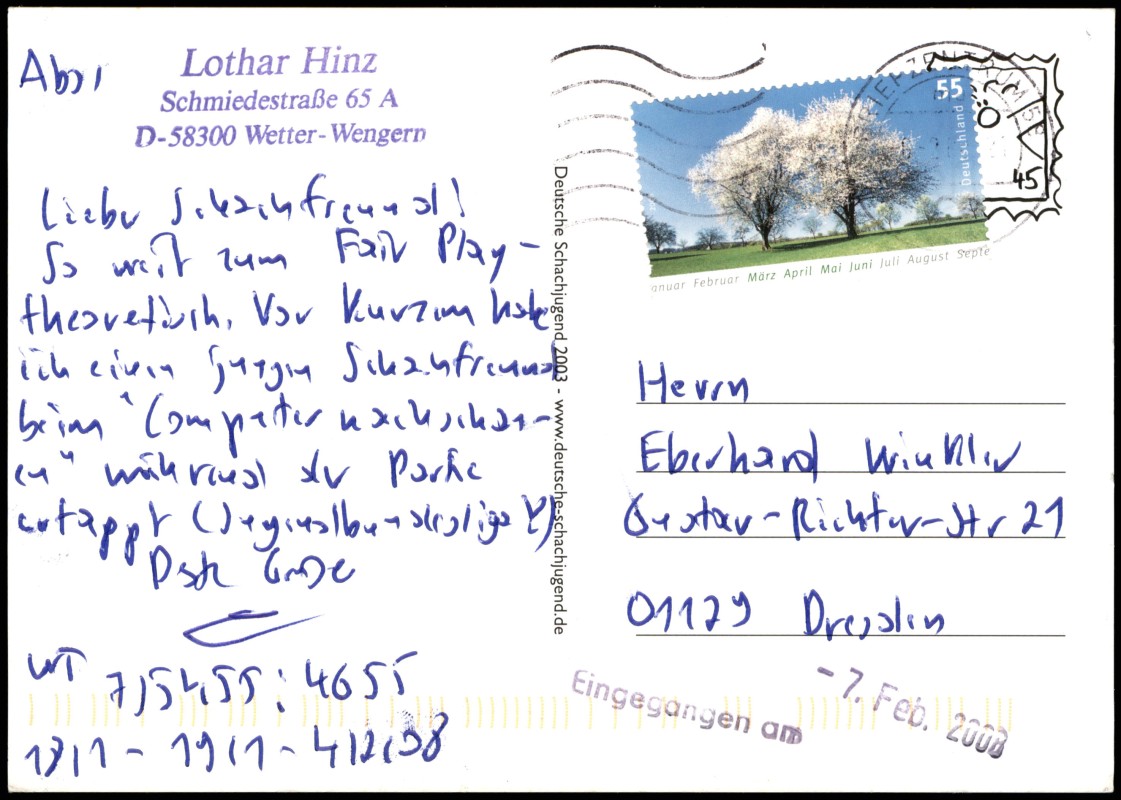 Abs:
Lothar Hinz
Schmiedestraße 65 A
D-58300 Wetter-Wengern
Lieber Schachfreund!
So weit zum Fair Play-
theoretisch. Vor Kurzem habe
ich einen jungen Schachfreund
beim "Computer nachschau-
en" während der Partie
ertappt (Jugendbundesliga!)
Beste Grüße
WT 7) 5455 : 4655
18/1 - 19/1 - 4/2/08
Deutsche Schachjugend 2003 - www.deutsche-schachjugend.de
55
Deutschland
anuar Februar März April Mai Juni Juli August Septe
45
Herrn
Eberhard Winkler
Gustav-Richter-Str 21
01129 Dresden
Eingegangen am
- 7. Feb. 2008